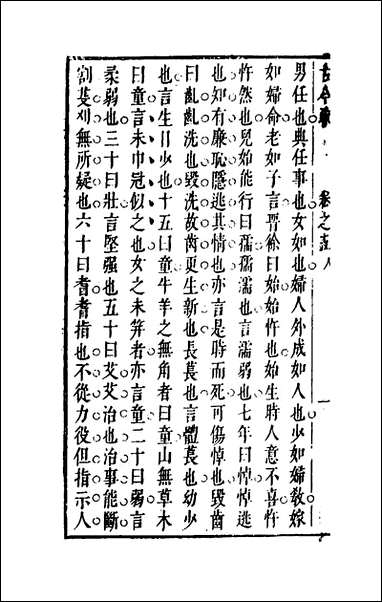 古今 卷之 人
男任也典任事也女如也婦人外成如人也少如婦敎嫁
如婦命老如子言晉徐曰始始忤也始生時人意不喜忤
忤然也兒始能行曰孺孺濡也言濡弱也七年曰悼悼逃
也知有廉恥隱逃其情也亦言是時而死可傷悼也毀齒
曰亂亂洗也毀洗故齒更生新也長萇也言體萇也幼少
也言生日少也十五曰童牛羊之無角者曰童山無草木
曰童言未巾冠似之也女之未笄者亦言童二十曰弱言
柔弱也三十曰壯言堅强也五十曰艾艾治也治事能斷
割芟刈無所疑也六十曰耆耆指也不從力役但指示人